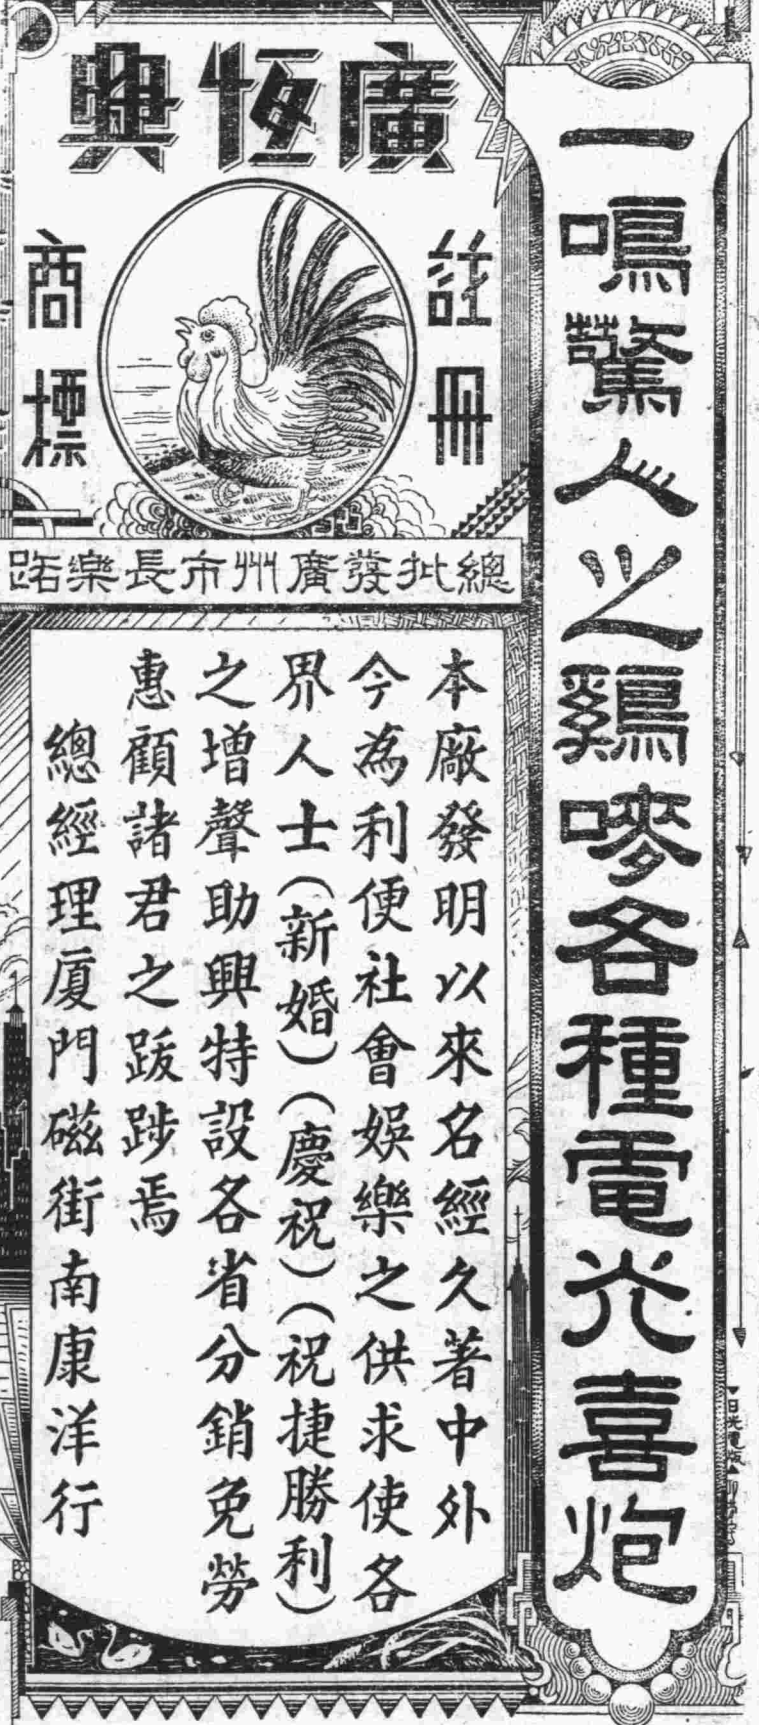 一鳴驚人之鷄嘜各種電光喜炮
廣恆興
註冊
商標
總批發廣州市長樂路
本廠發明以來名經久著中外
今為利便社會娛樂之供求使各
界人士（新婚）（慶祝）（祝捷勝利）
之增聲助興特設各省分銷免勞
惠顧諸君之跋踄焉
總經理廈門磁街南康洋行
日光電版